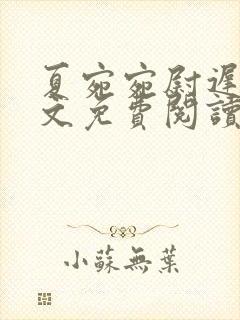 夏宛宛尉遲
文免費閱讀
小蘇無葉